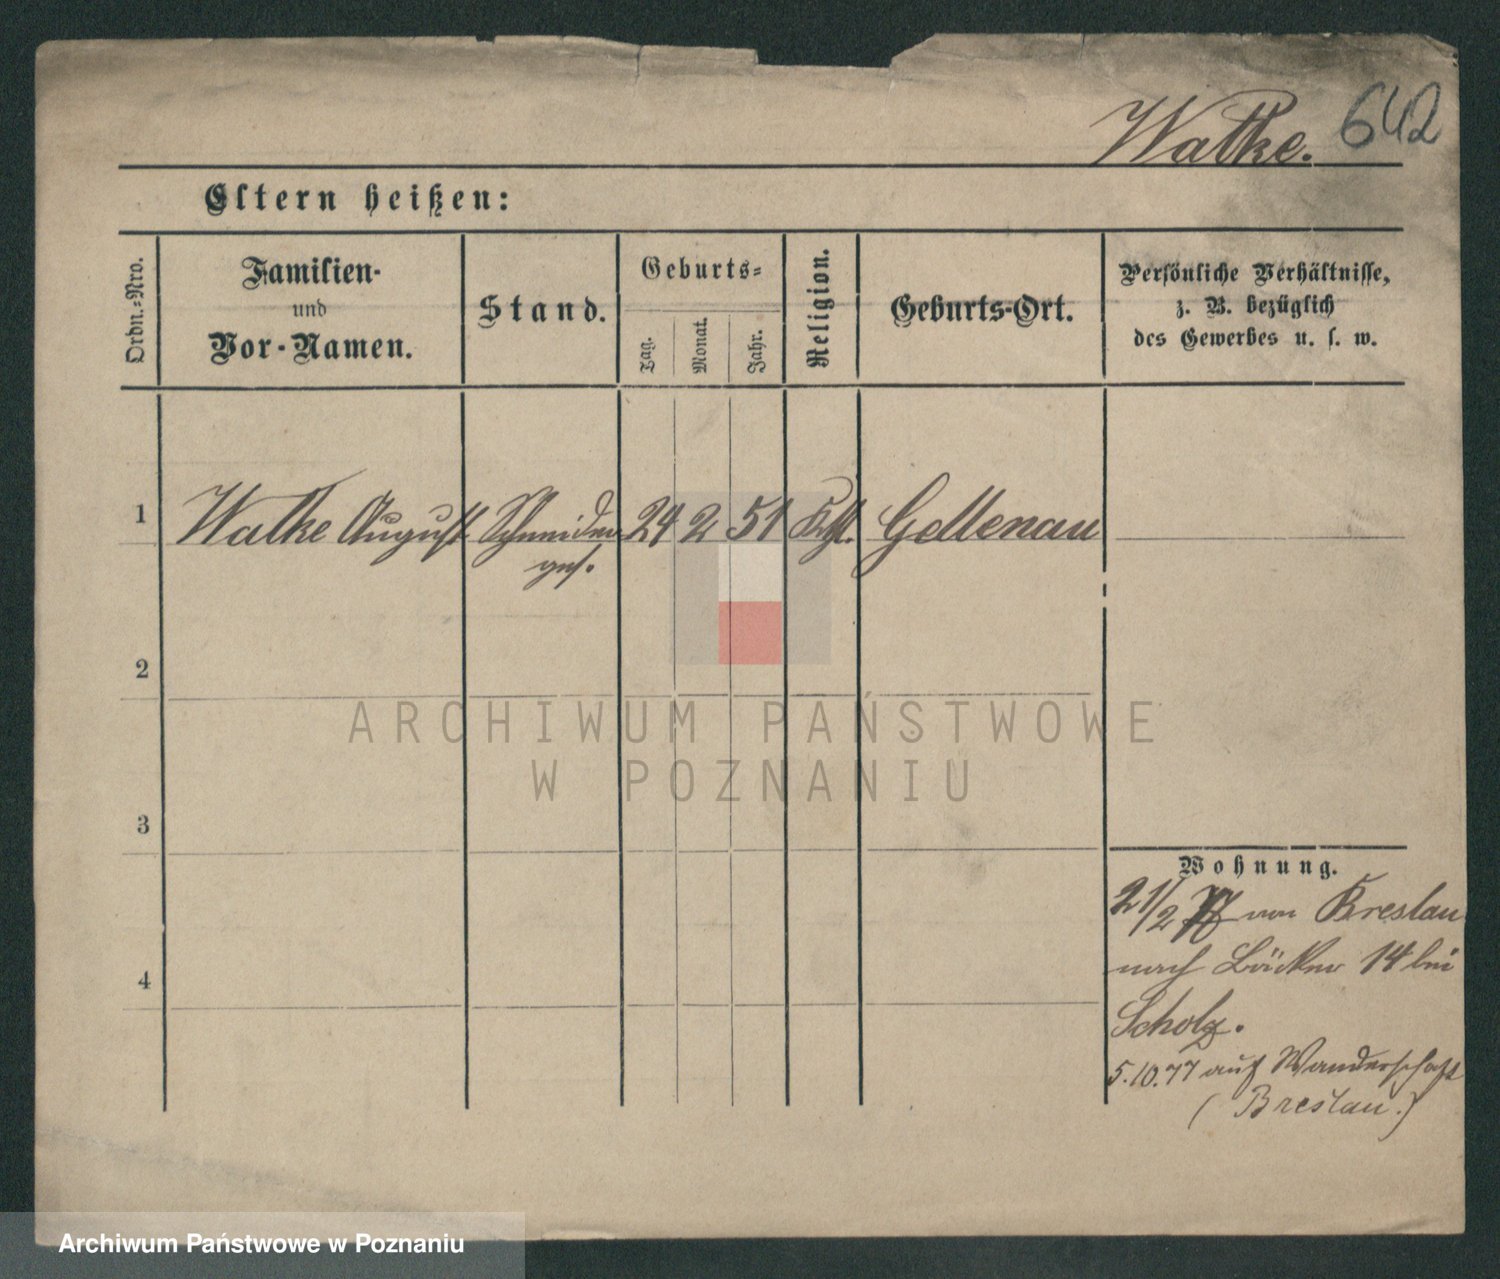 Walke. 642
Eltern heißen:
Ordn.-Nro.
Familien-
und
Vor-Namen.
Stand.
Geburts-
Tag.
Monat.
Jahr.
Religion.
Geburts-Ort.
Persönliche Verhältnisse,
z. B. bezüglich
des Gewerbes u. s. w.
1 Walke August Schneider 24 2 51 Kth. Gellenau
ges.
2
ARCHIWUM PAŃSTWOWE
W POZNANIU
3
Wohnung.
21/2 77 von Breslau
nach Bäcker 14 bei
4
Scholz.
5.10.77 auf Wanderschaft
(Breslau.)
Archiwum Państwowe w Poznaniu